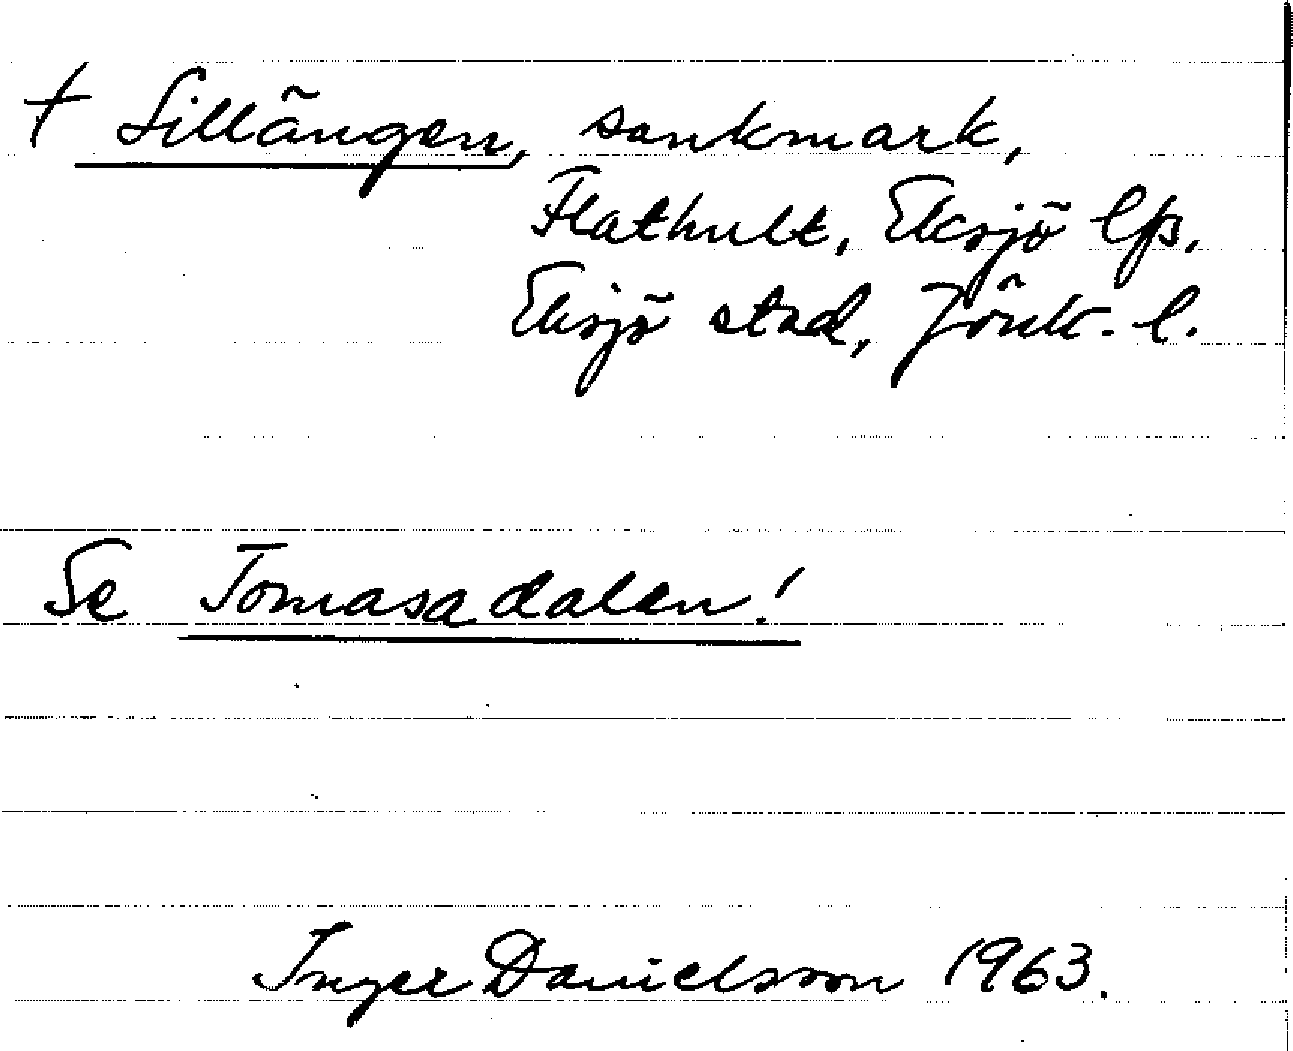 † Sillängen, sankmark,
Flathult, Eksjö lfs,
Eksjö stad, Jönk. l.
Se Tomasadalen!
Inger Danielsson 1963.